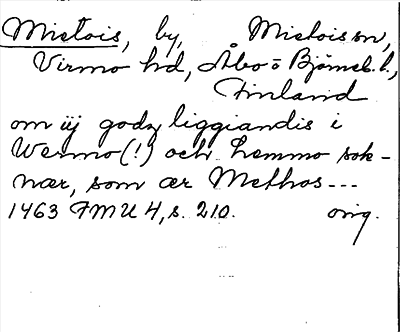 Mietois, by, Mietois sn,
Virmo hd, Åbo o Björneb. l.,
Finland
om iij godz liggiandis i
Wermo(!) och Lemmo sok-
nær, som ær Methos---
1463 FMU 4, s. 210. orig.